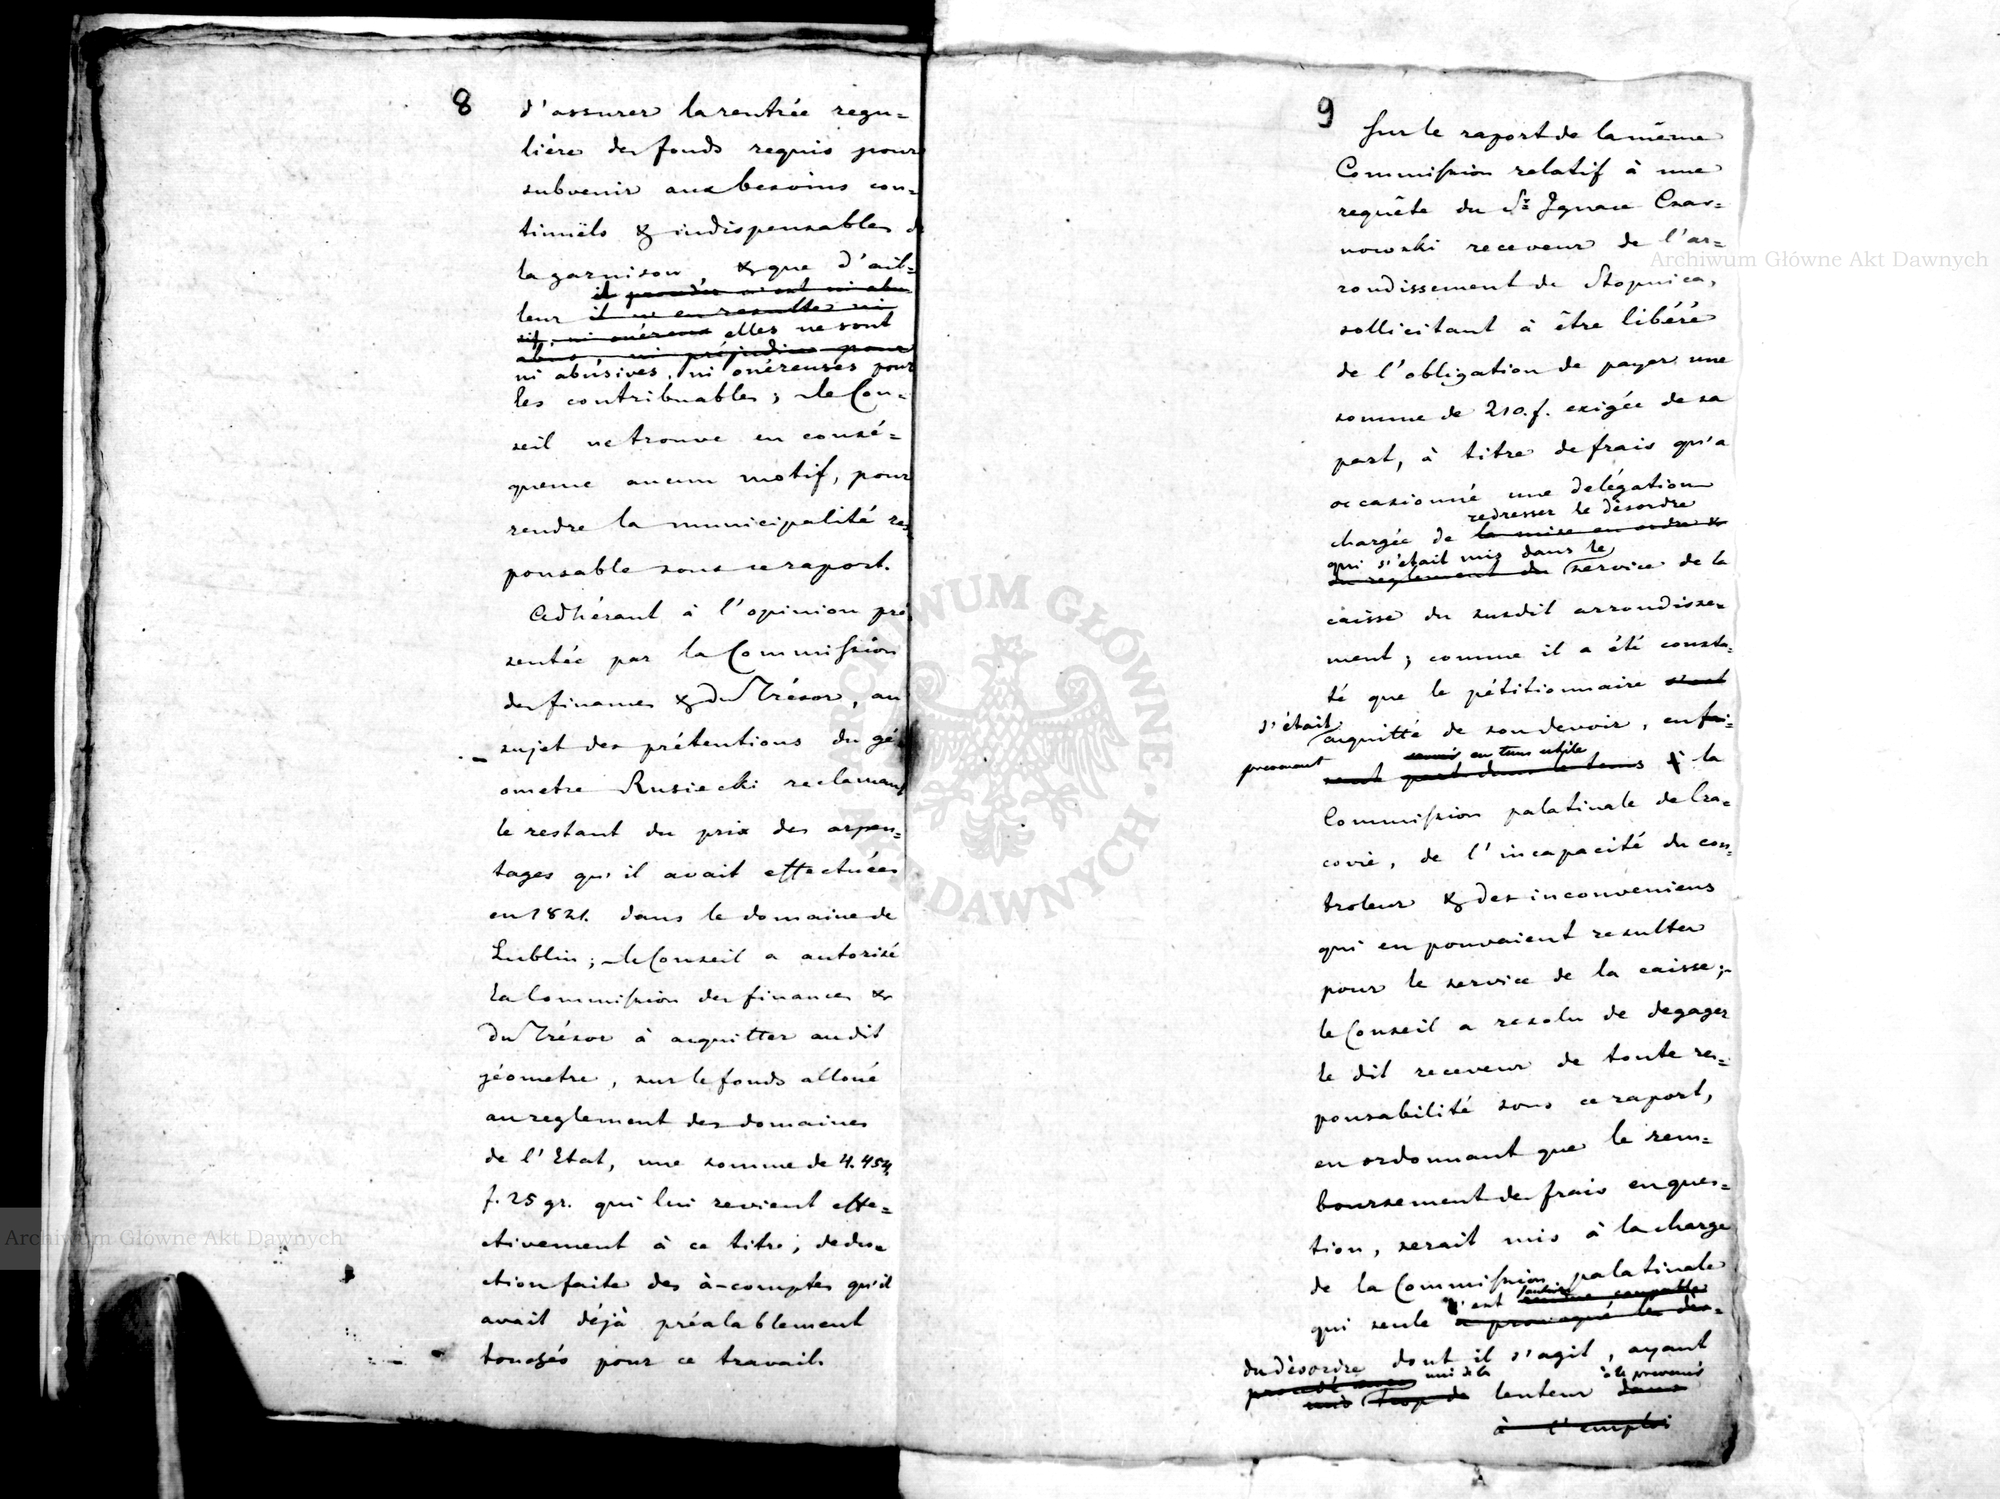 8
d'assurer la rentrée regu=
lière des fonds requis pour
subvenir aux besoins con=
tinuëls & indispensables de
la garnison, & que d'ail=
il procédés n'est ni abu-
leur il ne en resulte ni
sif, ni onéreux elles ne sont
abus, ni préjudice pour
ni abúsives, ni onéreuses pour
les contribuables; le Con=
seil ne trouve en consé=
quence aucun motif, pour
rendre la municipalité res
ponsable sous ce raport.
Adhérant à l'opinion pré
sentée par la Commission
des finances & du Trésor, au
sujet des prétentions du gé
ometre Rusiecki reclamant
le restant du prix des arpen=
tages qu'il avait effectuées
en 1821. dans le domaine de
Lublin; le Conseil a autorisé
la Commission des finances &
du Trésor à acquitter audit
géometre, sur le fonds alloué
au reglement des domaines
de l'Etat, une somme de 4.454,
f. 25 gr. qui lui revient effe=
ctivement à ce titre; dedu=
ction faite des à-comptes qu'il
avait déjà préalablement
touchés pour ce travail.
9
Sur le raport de la même
Commission relatif à une
requête du Sr Ignace Czar=
nowski receveur de l'ar=
rondissement de Stopnica,
sollicitant à être libéré
de l'obligation de payer une
somme de 210.f. exigée de sa
part, à titre de frais qu'a
occasionné une délégation
redresser le désordre
chargée de la mise en ordre &
qui s'était mis dans le
du reglement du service de la
caisse du susdit arrondisse=
ment; comme il a été consta=
té que le pétitionnaire s'est
s'était acquitté de son devoir, en fai=
prevenant en tems utile
sant part dans le tems à la
Commission palatinale de Cra=
covie, de l'incapacité du con=
troleur & des inconveniens
qui en pouvaient resulter
pour le service de la caisse;
le Conseil a resolu de degager
le dit receveur de toute res=
ponsabilité sous ce raport,
en ordonnant que le rem=
boursement des frais en ques=
tion, serait mis à la charge
de la Commission palatinale
rendue coupable
qui seule s'est a provoqué le des=
du désordre dont il s'agit, ayant
procedé avec mis de la à le prevenir
mis trop de lenteur dans
à l'emploi
Archiwum Główne Akt Dawnych
Archiwum Główne Akt Dawnych
ARCHIWUM GŁÓWNE AKT DAWNYCH